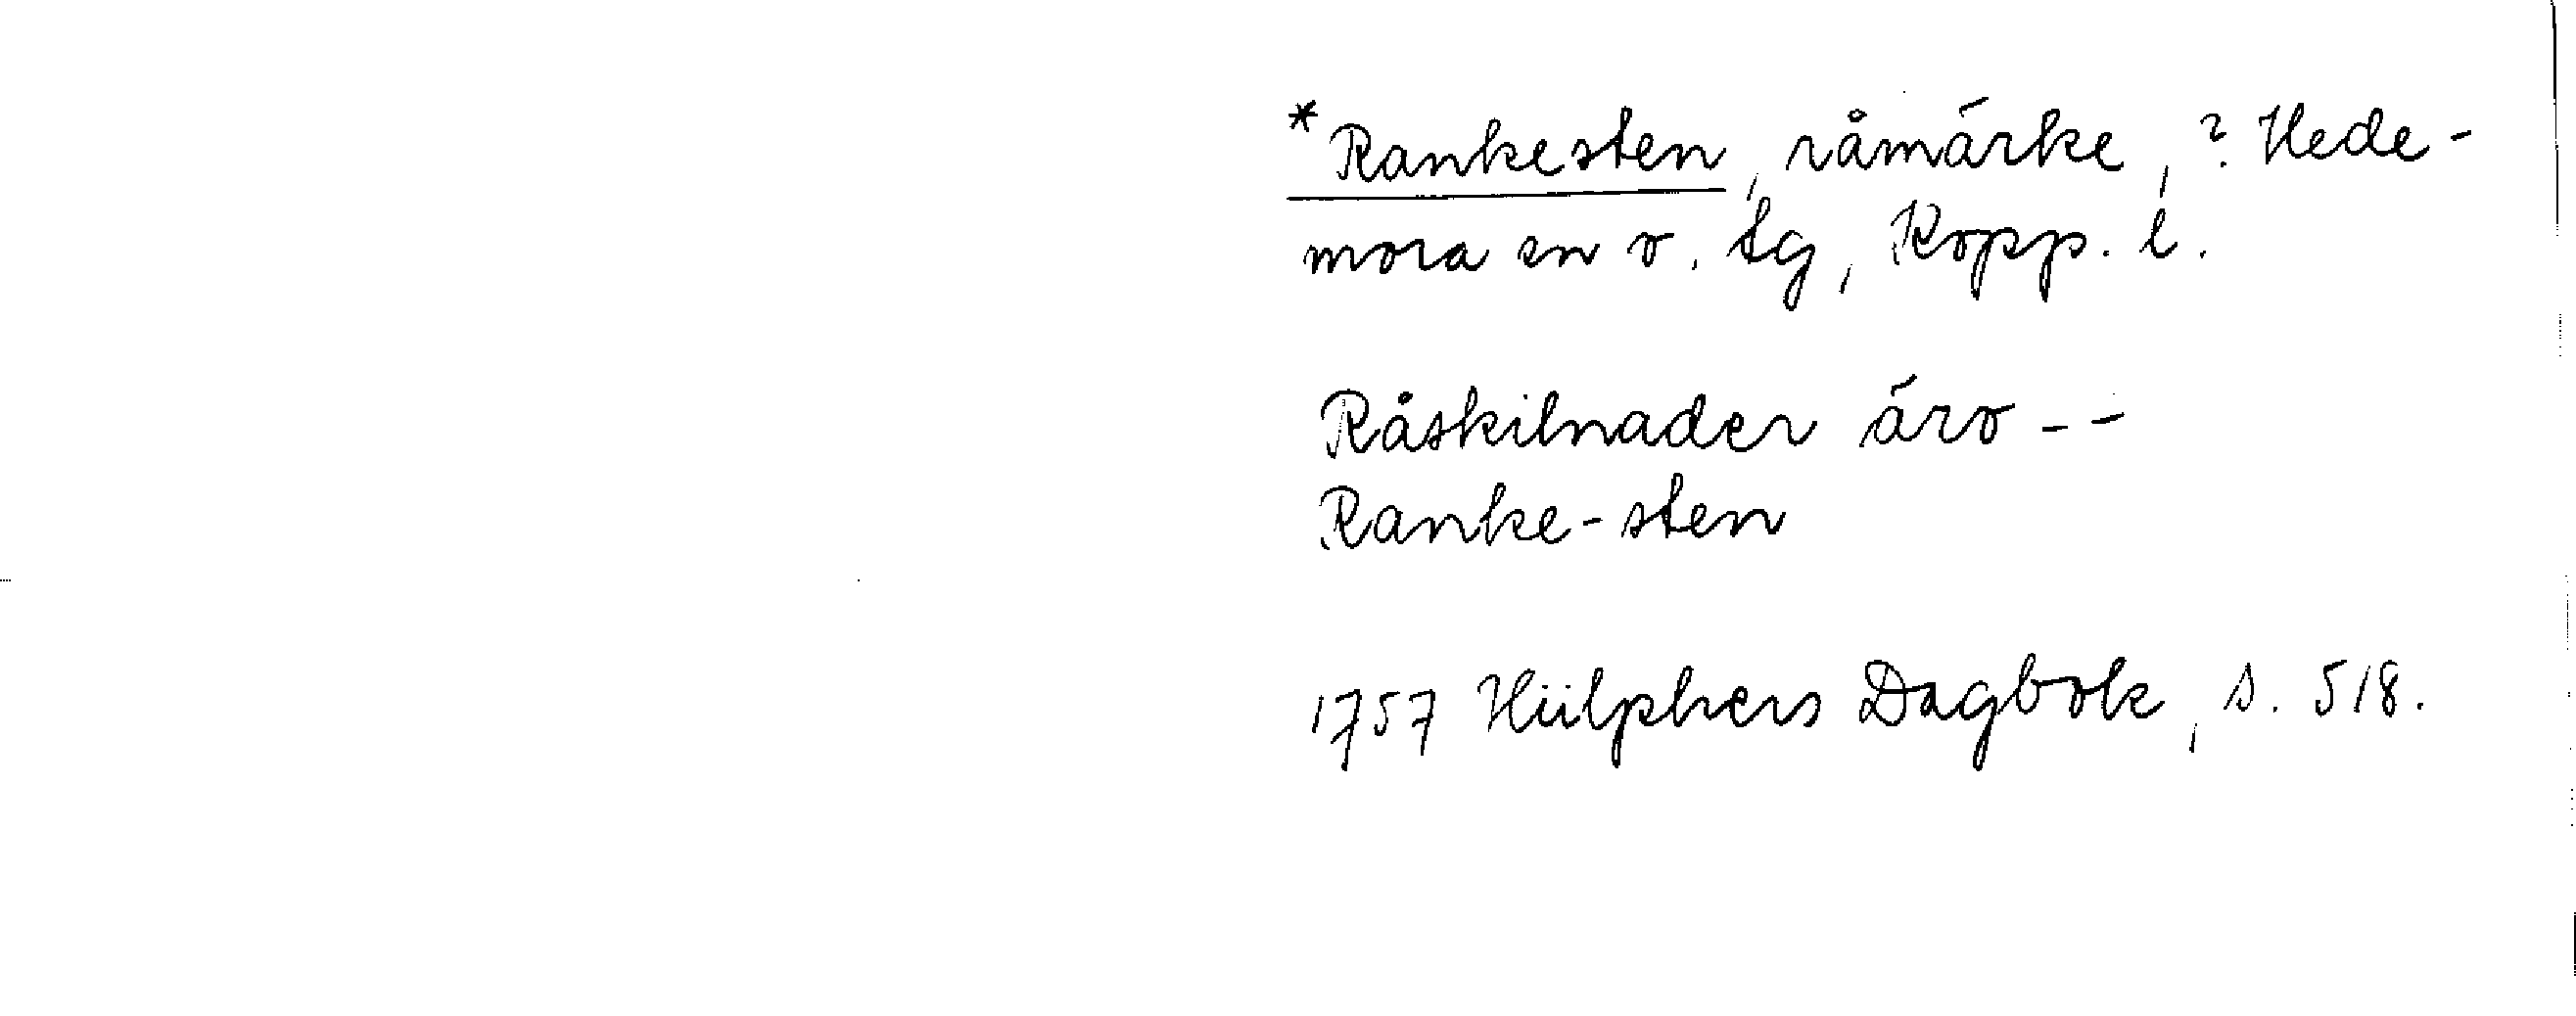 *Rankesten, råmärke, ? Hede-
mora sn o. tg, Kopp. l.
Råskilnader äro --
Ranke-sten
1757 Hülphers Dagbok, s. 518.